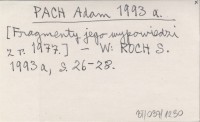 PACH Adam 1993 a.
[Fragmenty jego wypowiedzi
z r. 1977.] – W: ROCH S.
1993a, S. 26-28.